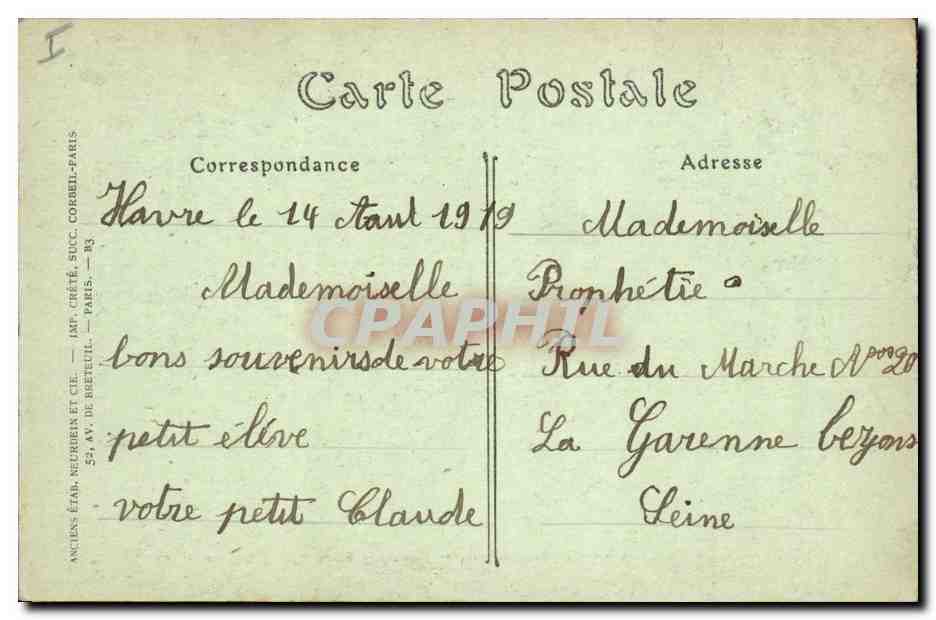 I
Carte Postale
Correspondance
Havre le 14 Aout 1919
Mademoiselle
bons souvenirs de votre
petit éléve
votre petit Claude
Adresse
Mademoiselle
Prophétie
Rue du Marche 20
La Garenne bezons
Seine
ANCIENS ÉTAB. NEURDEIN ET CIE. — IMP. CRÉTÉ, SUCC. CORBEIL-PARIS
52, AV. DE BRETEUIL. — PARIS. — B3
CPAPHIL